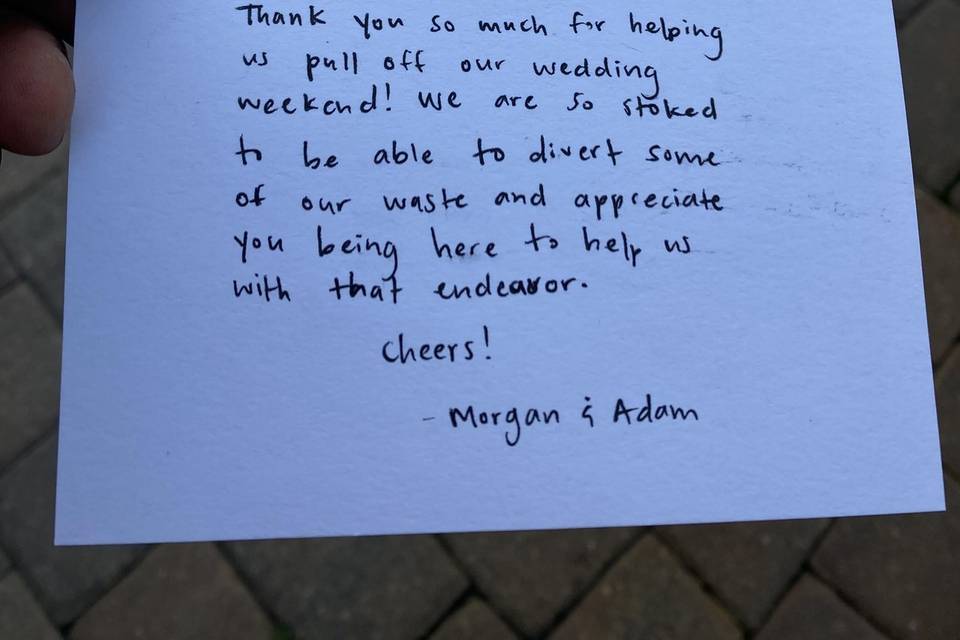 Thank you so much for helping
us pull off our wedding
weekend! We are so stoked
to be able to divert some
of our waste and appreciate
you being here to help us
with that endeavor.
Cheers!
- Morgan & Adam